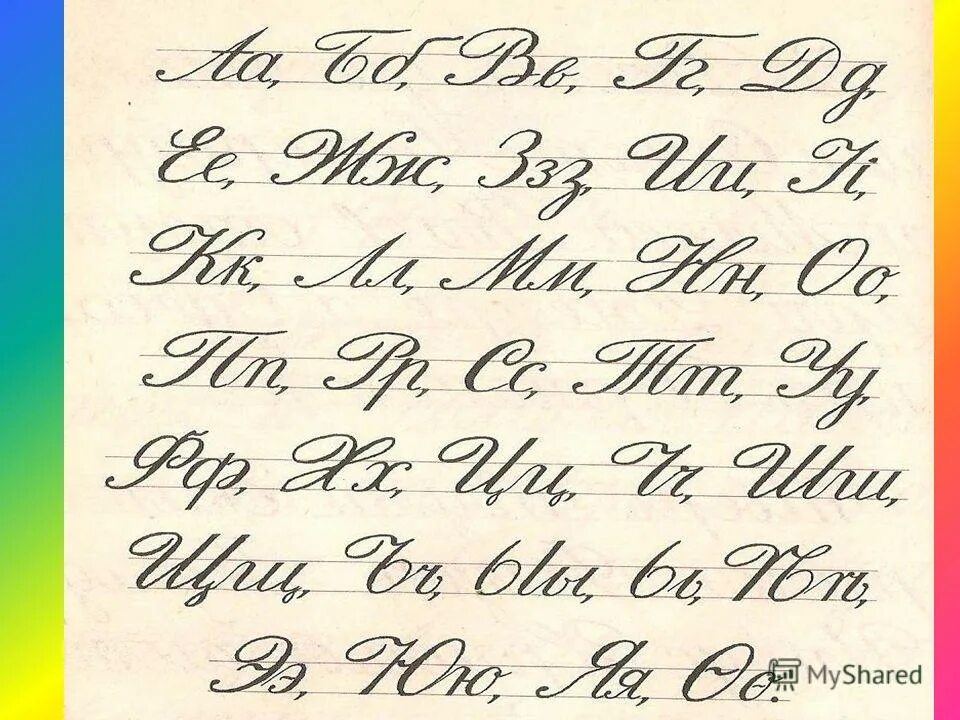 Аа, Бб, Вв, Гг, Дд,
Ее, Жж, Ззз, Ии, Іі,
Кк, Лл, Мм, Нн, Оо,
Пп, Рр, Сс, Тт, Уу,
Фф, Хх, Цц, Чч, Шш,
Щщ, Ъъ, Ыы, Ьь, Ѣѣ,
Ээ, Юю, Яя, Ѳѳ.
MyShared